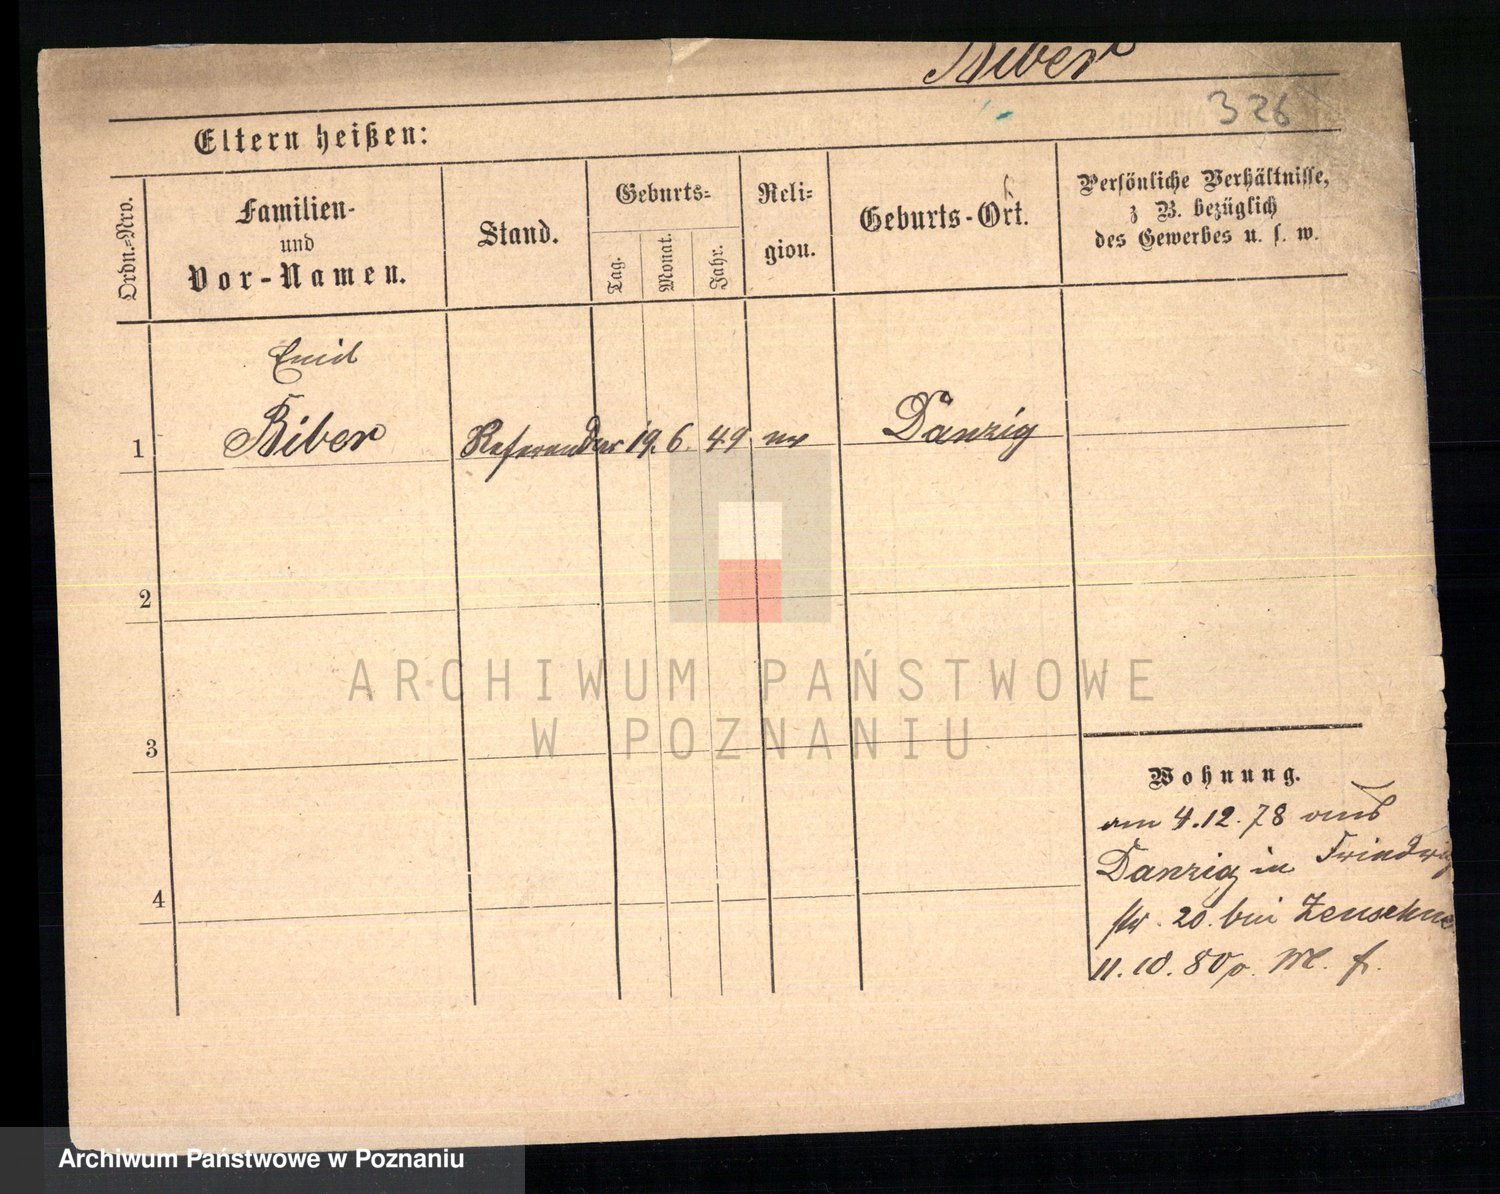 Biber
326
Eltern heißen:
Ordn.-Nro.
Familien-
und
Vor-Namen.
Stand.
Geburts-
Tag.
Monat.
Jahr.
Reli-
gion.
Geburts-Ort.
Persönliche Verhältnisse,
z B. bezüglich
des Gewerbes u. s. w.
Emil
1 Biber Referendar 19. 6. 49 Danzig
2
3
4
Wohnung.
am 4.12.78 aus
Danzig in Friedrich
str. 20. bei
11.10.80
ARCHIWUM PAŃSTWOWE
W POZNANIU
Archiwum Państwowe w Poznaniu